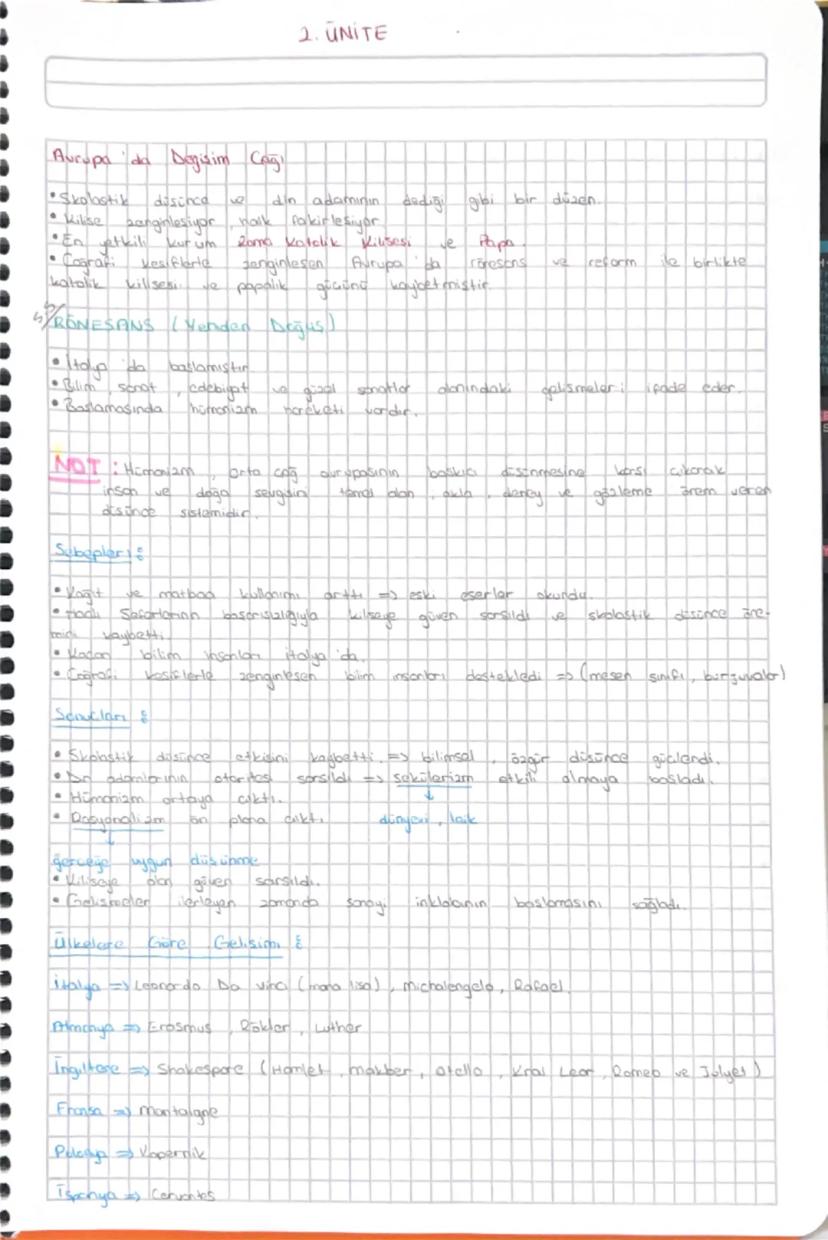 2. ÜNİTE
Avrupa'da Değişim Çağı
• Skolastik düşünce ve din adamının dediği gibi bir düzen.
• Kilise zenginleşiyor, halk fakirleşiyor.
• En yetkili kurum Roma Katolik Kilisesi ve Papa.
• Coğrafi keşiflerle zenginleşen Avrupa'da rönesans ve reform ile birlikte
katolik kilisesi ve papalık gücünü kaybetmiştir.
RÖNESANS (Yeniden Doğuş)
• İtalya'da başlamıştır.
• Bilim, sanat, edebiyat ve güzel sanatlar alanındaki gelişmeleri ifade eder.
• Başlamasında hümanizm hareketi vardır.
NOT: Hümanizm, orta çağ avrupasının baskıcı düşünmesine karşı çıkarak
insan ve doğa sevgisini temel alan, akla, deney ve gözleme önem veren
düşünce sistemidir.
Sebepleri:
• Kağıt ve matbaa kullanımı arttı => eski eserler okundu.
• Haçlı Seferlerinin başarısızlığıyla kiliseye güven sarsıldı ve skolastik düşünce öne-
mini kaybetti.
• Kaçan bilim insanları İtalya'da.
• Coğrafi keşiflerle zenginleşen bilim insanları destekledi => (mesen sınıfı, burjuvalar)
Sonuçları:
• Skolastik düşünce etkisini kaybetti. => bilimsel, özgür düşünce güçlendi.
• Din adamlarının otoritesi sarsıldı => sekülerizm etkili olmaya başladı.
• Hümanizm ortaya çıktı.
• Rasyonalizm ön plana çıktı. dünyevi, laik
gerçeğe uygun düşünme
• Kiliseye olan güven sarsıldı.
• Gelişmeler ilerleyen zamanda sanayi inkılabının başlamasını sağladı.
Ülkelere Göre Gelişim:
İtalya => Leonardo Da vinci (mona lisa), michalengelo, Rafael.
Almanya => Erasmus, Rökler, Luther
İngiltere => Shakespare (Hamlet, makber, otello, Kral Lear, Romeo ve Jülyet)
Fransa => montaigne
Polonya => Kopernik
İspanya => Cervantes